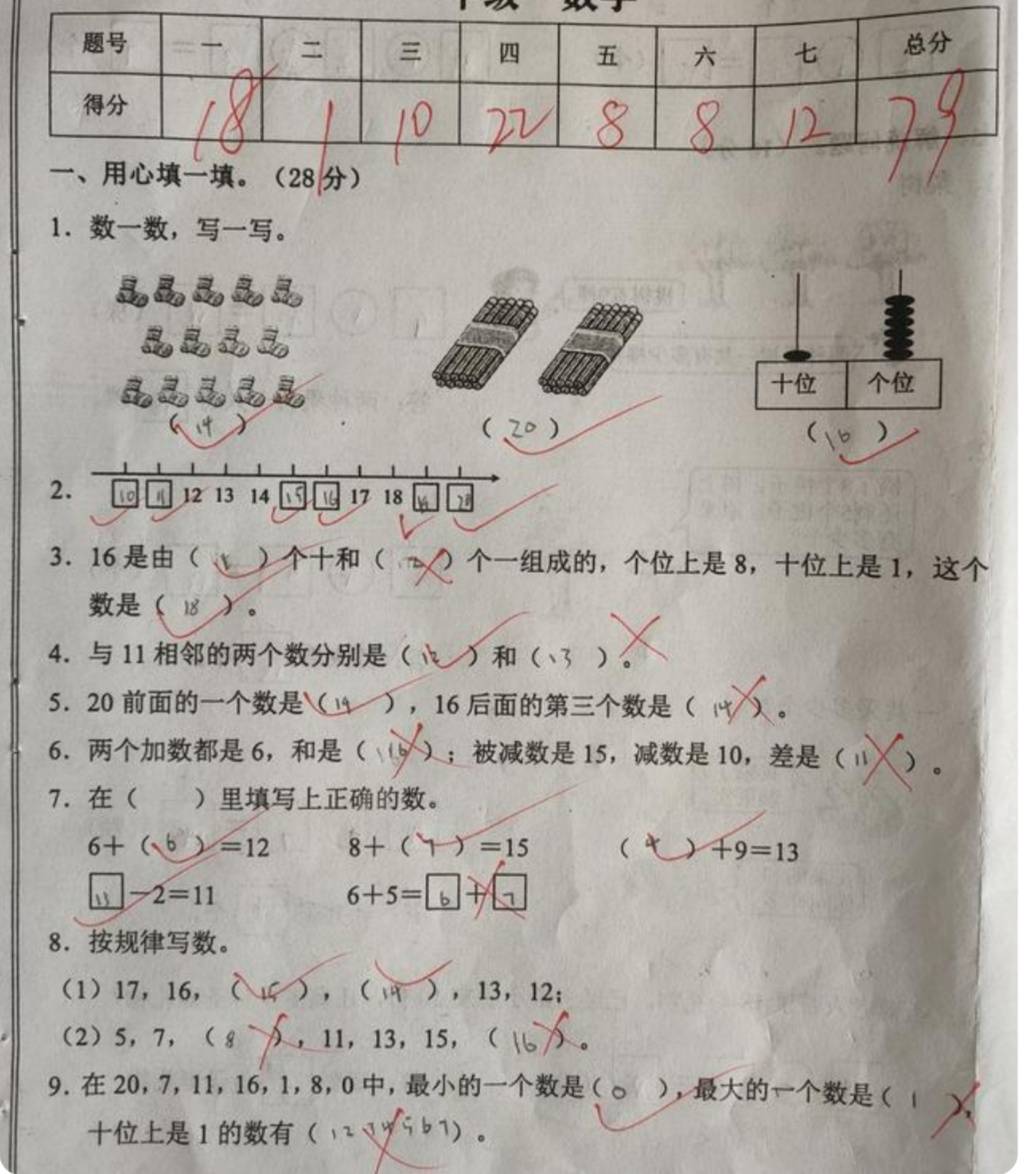 题号 一 二 三 四 五 六 七 总分
得分 18 1 10 22 8 8 12 79
一、用心填一填。（28分）
1．数一数，写一写。
十位 个位
（14） （20） （16）
2． 10 11 12 13 14 15 16 17 18
3．16是由（ ）个十和（ ）个一组成的，个位上是8，十位上是1，这个
数是（18）。
4．与11相邻的两个数分别是（12）和（13）。
5．20前面的一个数是（19），16后面的第三个数是（14）。
6．两个加数都是6，和是（ ）；被减数是15，减数是10，差是（11）。
7．在（ ）里填写上正确的数。
6＋（6）＝12 8＋（7）＝15 （4）＋9＝13
－2＝11 6＋5＝6＋7
8．按规律写数。
（1）17，16，（15），（14），13，12；
（2）5，7，（8），11，13，15，（16）。
9．在20，7，11，16，1，8，0中，最小的一个数是（0），最大的一个数是（1），
十位上是1的数有（1234567）。